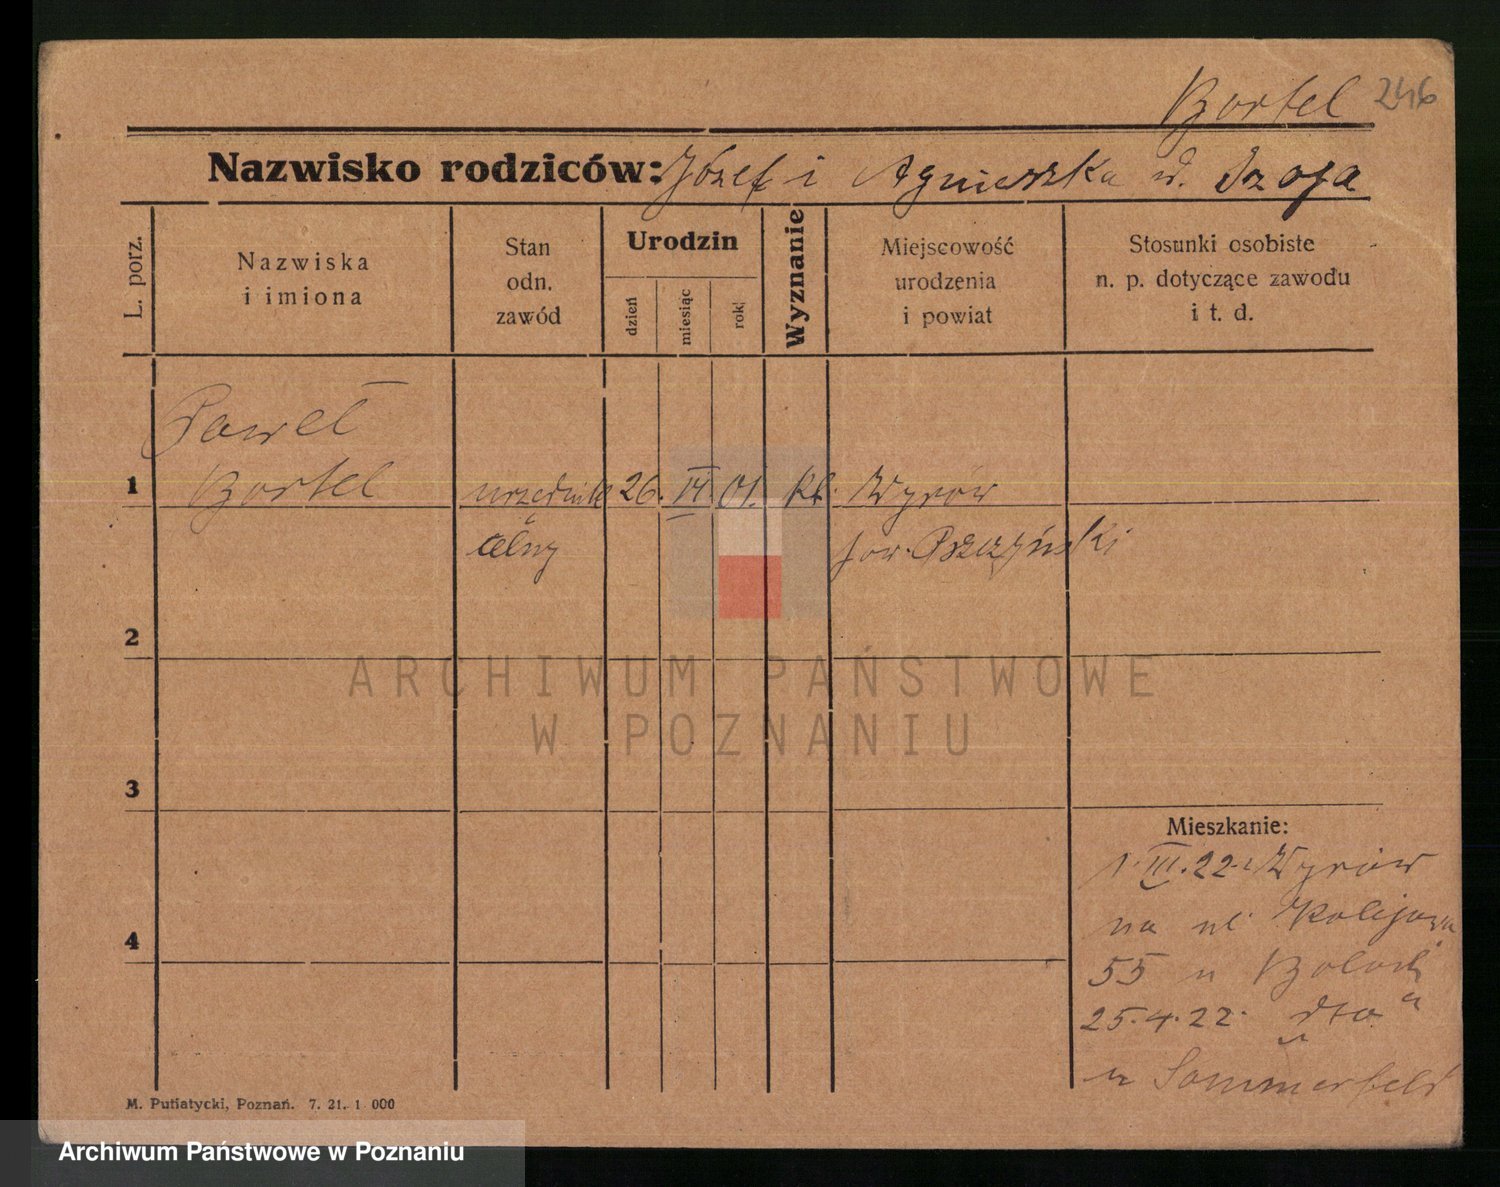 Bortel 246
Nazwisko rodziców: Józef i Agnieszka d.
L. porz.
Nazwiska
i imiona
Stan
odn.
zawód
Urodzin
dzień
miesiąc
rok
Wyznanie
Miejscowość
urodzenia
i powiat
Stosunki osobiste
n. p. dotyczące zawodu
i t. d.
Paweł
1 Bortel urzędnik 26. VI 01. kt. Wyrów
celny pow. Pszczyński
2
ARCHIWUM PAŃSTWOWE
W POZNANIU
3
Mieszkanie:
1. III. 22. Wyrów
4 na ul. Kolejowa
55 u
25.4.22. "dto"
u Sommerfeld
M. Putiatycki, Poznań. 7. 21. 1 000
Archiwum Państwowe w Poznaniu